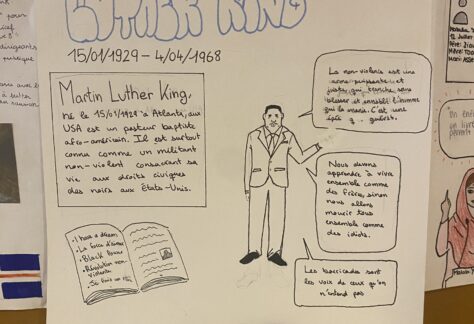 LUTHER KING
15/01/1929 – 4/04/1968
Martin Luther King,
né le 15/01/1929 à Atlanta, aux
USA est un pasteur baptiste
afro-américain. Il est surtout
connu comme un militant
non-violent consacrant sa
vie aux droits civiques
des noirs aux États-Unis.
La non-violence est une
arme puissante et
juste, qui tranche sans
blesser et ennoblit l'homme
qui la manie. C'est une
épée q. guérit.
Nous devons
apprendre à vivre
ensemble comme
des frères, sinon
nous allons
mourir tous
ensemble comme
des idiots.
Les barricades sont
les voix de ceux qu'on
n'entend pas
- I have a dream
- La force d'aimer
- Black Power
- Révolution non
violente